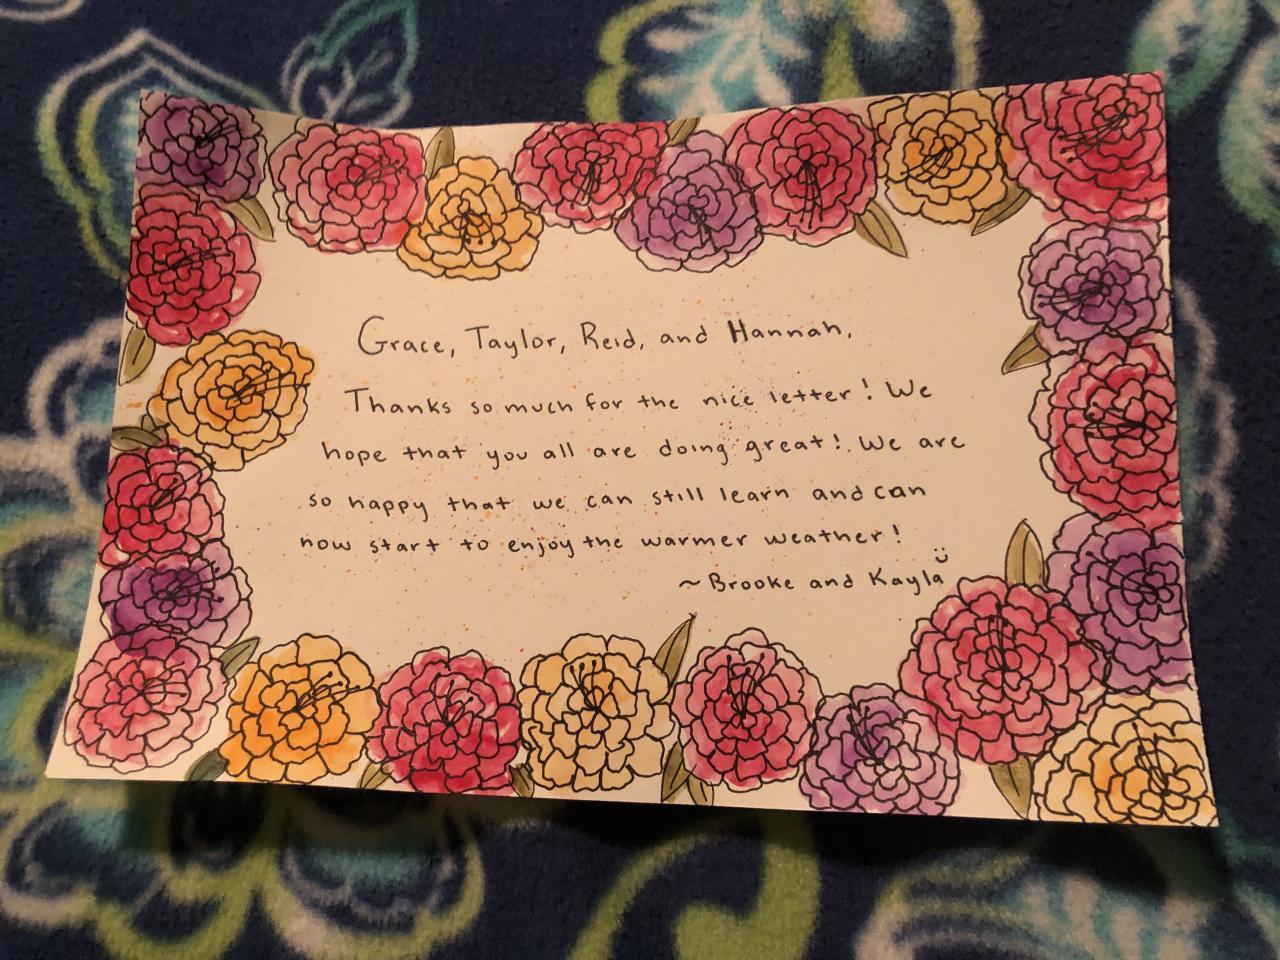 Grace, Taylor, Reid, and Hannah,
Thanks so much for the nice letter! We
hope that you all are doing great! We are
so happy that we can still learn and can
now start to enjoy the warmer weather!
~ Brooke and Kayla